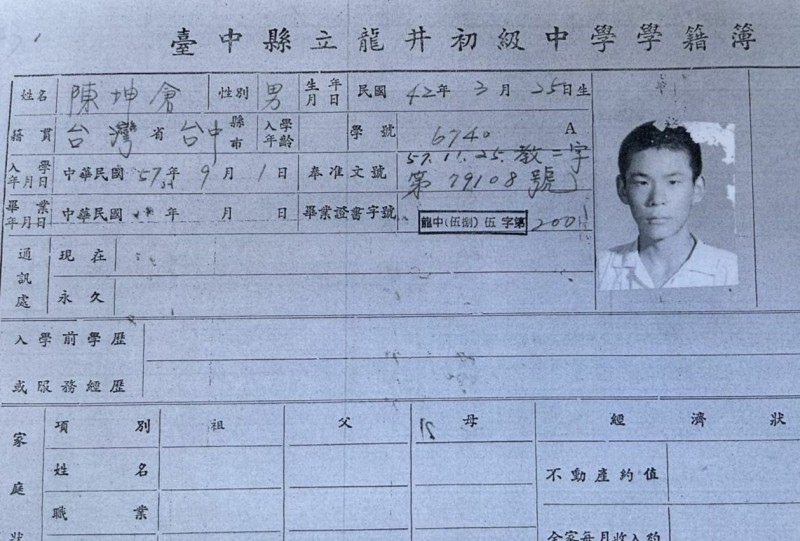 臺中縣立龍井初級中學學籍簿
姓名 陳坤倉 性別 男 生年月日 民國 42年 3月 25日生
籍貫 台灣省 台中縣市 入學年齡 學號 6740 A
入學年月日 中華民國 57年 9月 1日 奉准文號 57.11.25.教二字第79108號
畢業年月日 中華民國 年 月 日 畢業證書字號 龍中(伍捌)伍字第 200
通訊處 現在
永久
入學前學歷
或服務經歷
家庭狀 項別 祖 父 母 經濟狀
姓名 不動產約值
職業 全家每月收入約